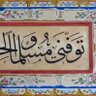 توفني مسلما والح